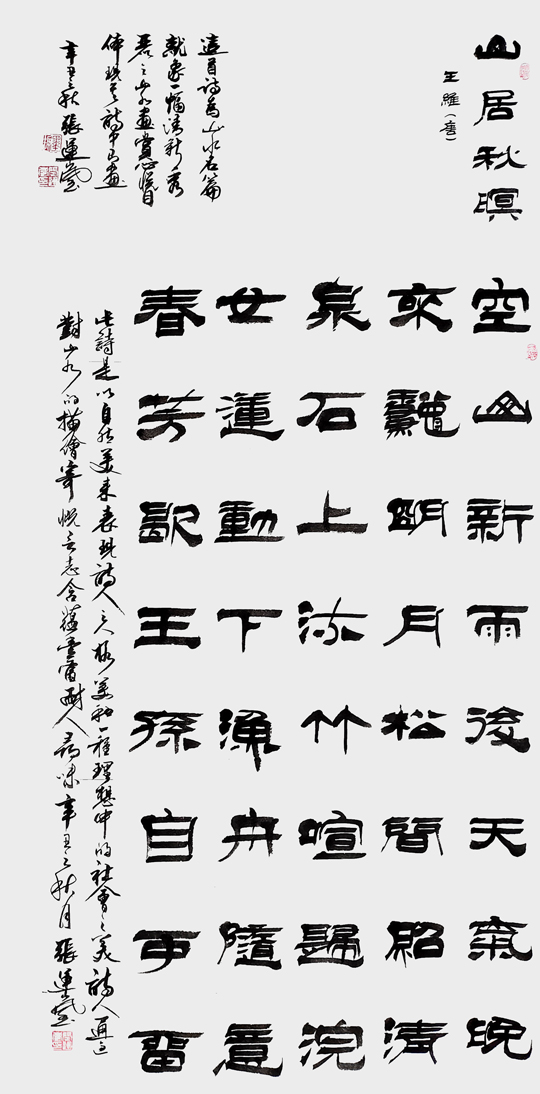 山居秋暝
王維(唐)
空山新雨後天氣晚
來龝明月松間照清
泉石上流竹喧歸浣
女蓮動下漁舟隨意
春芳歇王孫自可留
這首詩為山水名篇
就象一幅清新秀
麗之山水畫賞心悅目
体現其詩中有畫
辛丑之秋張運
此詩是以自然美來表現詩人之人格美和一種理想中的社會之美詩人通過
對山水的描繪寄慨言志含蘊豐富耐人尋味辛丑之秋月張運